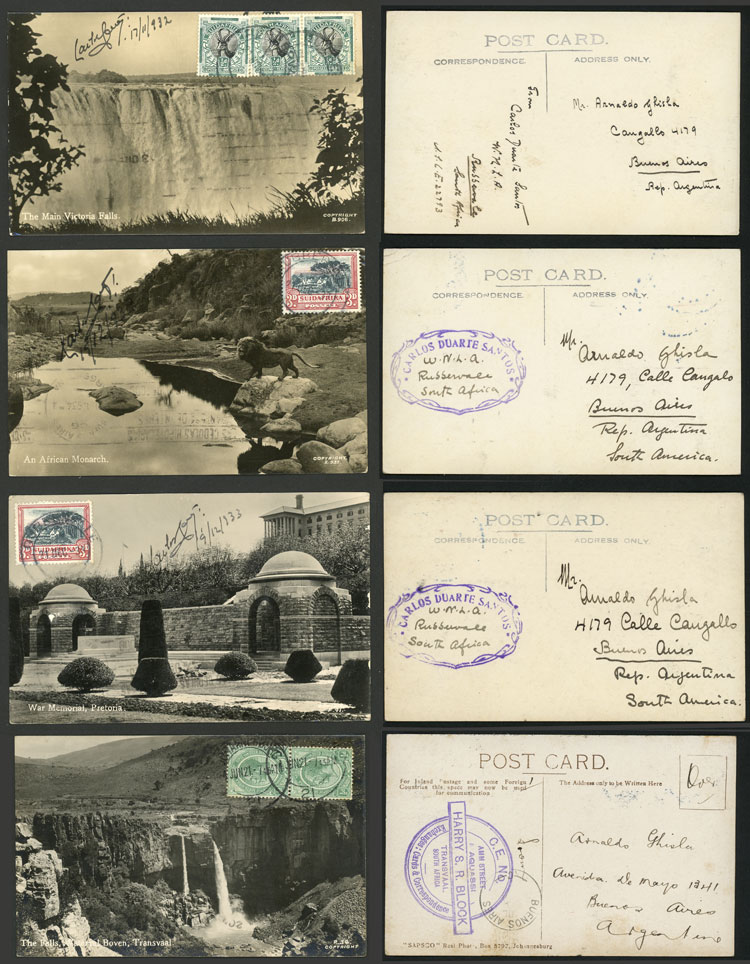 17/11/932
SUIDAFRIKA
SUIDAFRIKA
SUIDAFRIKA
The Main Victoria Falls.
COPYRIGHT
B.906.
POST CARD.
CORRESPONDENCE.
ADDRESS ONLY.
From
Carlos Duarte Santos
W.N.L.A.
South Africa
Mr. Arnaldo Ghisla
Cangallo 4179
Buenos Aires
Rep. Argentina
3D 3D
SUIDAFRIKA
POSSEEL
An African Monarch.
COPYRIGHT
POST CARD.
CORRESPONDENCE.
ADDRESS ONLY.
CARLOS DUARTE SANTOS
W.N.L.A.
South Africa
Mr.
Arnaldo Ghisla
4179, Calle Cangalo
Buenos Aires
Rep. Argentina
South America.
9/12/933
SUIDAFRIKA
War Memorial, Pretoria.
POST CARD.
CORRESPONDENCE.
ADDRESS ONLY.
CARLOS DUARTE SANTOS
W.N.L.A.
South Africa
Mr.
Arnaldo Ghisla
4179 Calle Cangallo
Buenos Aires
Rep. Argentina
South America.
The Falls, Waterval Boven, Transvaal
COPYRIGHT
POST CARD.
For Inland Postage and some Foreign
Countries this space may now be used
for communication
The Address only to be Written Here
C.E. No.
HARRY S. R. BLOOK
TRANSVAAL
SOUTH AFRICA
Exchanges: Cards & Correspondence
BUENOS AIRES
Arnaldo Ghisla
Avenida De Mayo 1341
Buenos Aires
Argentine
"SAPSCO" Real Photo, Box 5792, Johannesburg